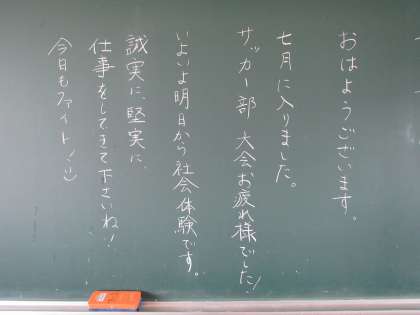 おはようございます。
七月に入りました。
サッカー部 大会お疲れ様でした!
いよいよ明日から社会体験です。
誠実に、堅実に、
仕事をしてきて下さいね!
今日もファイト!:)